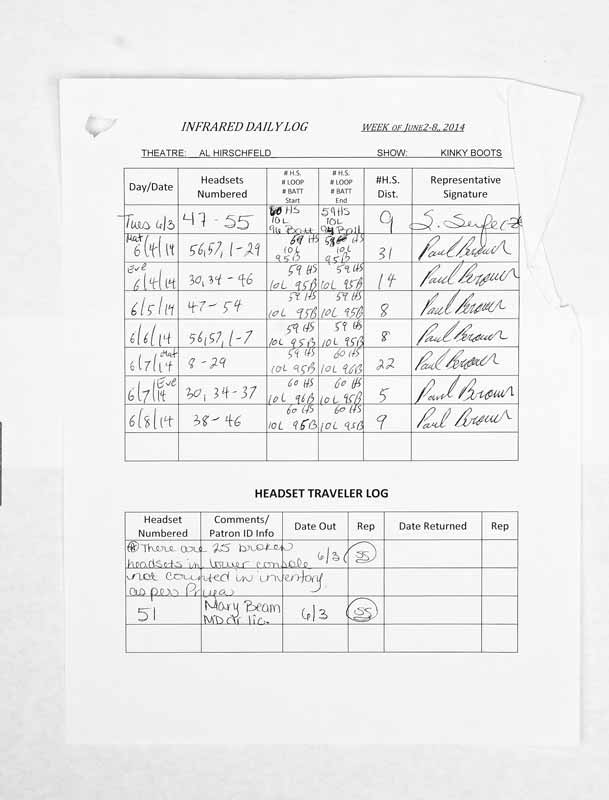 INFRARED DAILY LOG WEEK OF JUNE2-8, 2014
THEATRE: AL HIRSCHFELD SHOW: KINKY BOOTS
Day/Date Headsets Numbered # H.S. # LOOP # BATT Start # H.S. # LOOP # BATT End #H.S. Dist. Representative Signature
Tues 6/3 47-55 60 HS 10L 94 Batt 59HS 10L 94 Batt 9 S.
Mat 6/4/14 56,57,1-29 59 HS 10L 95B HS 10L 95B 31 Paul Brown
Eve 6/4/14 30,34-46 59 HS 10L 95B 59 HS 10L 95B 14 Paul Brown
6/5/14 47-54 59 HS 10L 95B 59 HS 10L 95B 8 Paul Brown
6/6/14 56,57,1-7 59 HS 10L 95B 59 HS 10L 95B 8 Paul Brown
6/7/14 Mat 8-29 59 HS 10L 95B 60 HS 10L 96B 22 Paul Brown
6/7/14 Eve 30,34-37 60 HS 10L 96B 60 HS 10L 95B 5 Paul Brown
6/8/14 38-46 60 HS 10L 95B 60 HS 10L 95B 9 Paul Brown
HEADSET TRAVELER LOG
Headset Numbered Comments/ Patron ID Info Date Out Rep Date Returned Rep
There are 25 broken 6/3 SS
headsets in lower console
not counted in inventory
as per Priya
51 Mary Beam MD dr lic. 6/3 SS